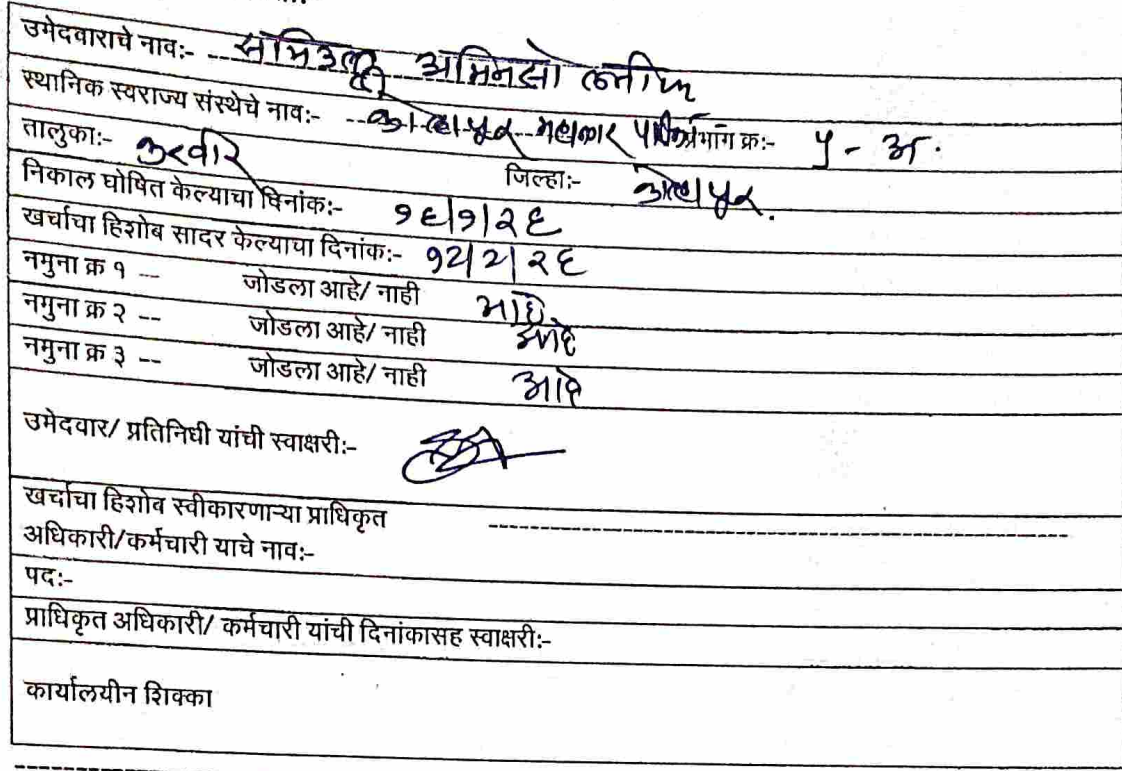 उमेदवाराचे नाव:- समिउल्ला अमिनसो लतीफ
स्थानिक स्वराज्य संस्थेचे नाव:- कोल्हापूर महानगर पालिका प्रभाग क्र:- ५ - अ.
तालुका:- करवीर जिल्हा:- कोल्हापूर.
निकाल घोषित केल्याचा दिनांक:- १६/१/२६
खर्चाचा हिशोब सादर केल्याचा दिनांक:- १२/२/२६
नमुना क्र १ -- जोडला आहे/ नाही आहे
नमुना क्र २ -- जोडला आहे/ नाही आहे
नमुना क्र ३ -- जोडला आहे/ नाही आहे
उमेदवार/ प्रतिनिधी यांची स्वाक्षरी:-
खर्चाचा हिशोब स्वीकारणाऱ्या प्राधिकृत
अधिकारी/कर्मचारी याचे नाव:-
पद:-
प्राधिकृत अधिकारी/ कर्मचारी यांची दिनांकासह स्वाक्षरी:-
कार्यालयीन शिक्का